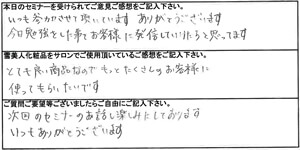 本日のセミナーを受けられてご意見ご感想をご記入下さい。
いつも分かりやすく思っています ありがとうございます
今日勉強した事をお客様に発信していけたらと思ってます
蕾美人化粧品をサロンでご使用頂いているご感想をご記入下さい。
とても良い商品なので もっとたくさんのお客様に
使ってもらいたいです
ご質問ご要望等ございましたらご自由にご記入下さい。
次回のセミナーのお話し楽しみにしております
いつもありがとうございます